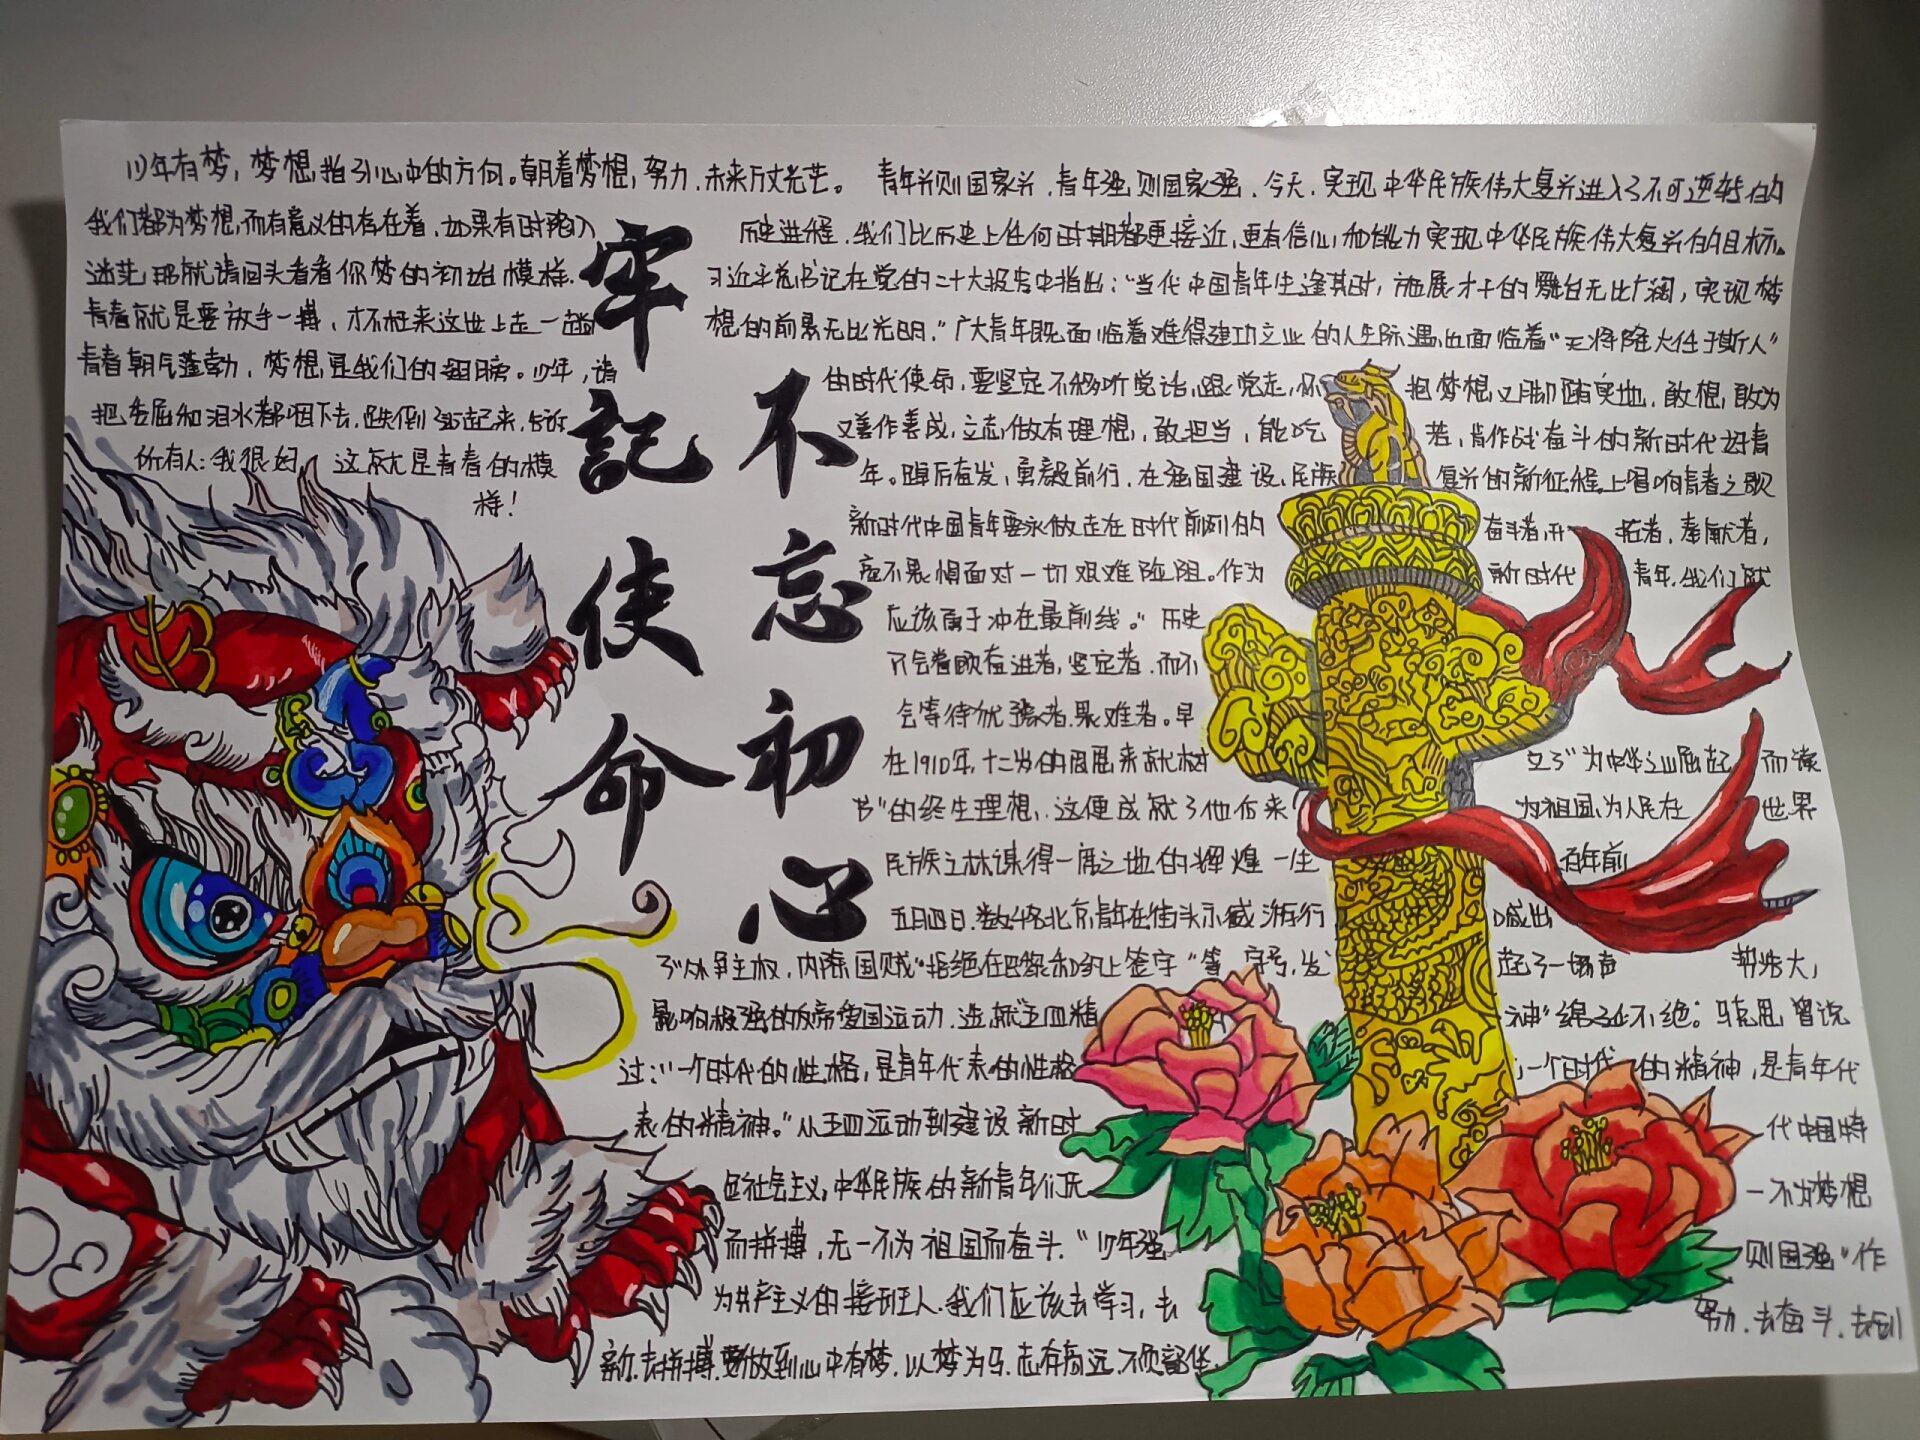 不忘初心
牢记使命
少年有梦，梦想指引心中的方向。朝着梦想，努力，未来万丈光芒。
我们都为梦想，而有意义的存在着，如果有时陷入
迷茫，那就请回头看看你梦的初始模样.
青春就是要放手一搏，才不枉来这世上走一趟
青春朝气蓬勃，梦想是我们的翅膀。少年，请
把委屈和泪水都咽下去，跌倒了站起来，告诉
所有人：我很好， 这就是青春的模
样！
青年兴则国家兴，青年强则国家强，今天，实现中华民族伟大复兴进入了不可逆转的
历史进程，我们比历史上任何时期都更接近，更有信心，和能力实现中华民族伟大复兴的目标。
习近平总书记在党的二十大报告中指出：“当代中国青年生逢其时，施展才干的舞台无比广阔，实现梦
想的前景无比光明.”广大青年既面临着难得建功立业的人生际遇，也面临着“天将降大任于斯人”
的时代使命，要坚定不移听党话，跟党走，怀 抱梦想，又脚踏实地，敢想，敢为
又善作善成，立志做有理想，敢担当，能吃 苦，肯作战奋斗的新时代好青
年。踔厉奋发，勇毅前行，在强国建设，民族 复兴的新征程上唱响青春之歌
新时代中国青年要永做走在时代前列的 奋斗者，开 拓者，奉献者，
应不畏惧面对一切艰难险阻。作为 新时代 青年，我们就
应该勇于冲在最前线。“历史
只会眷顾奋进者，坚定者，而不
会等待犹豫者畏难者。早
在1910年，十二岁的周恩来就树 立了“为中华之崛起 而读
书”的终生理想，这便成就了他后来 为祖国，为人民在 世界
民族之林谋得一席之地的辉煌一生 百年前
五月四日，数千名北京青年在街头示威游行 喊出
了“外争主权，内除国贼”“拒绝在巴黎和约上签字”等 口号，发 起了一场声 势浩大，
影响极强的反帝爱国运动，造就五四精 神”绵延不绝：马克思曾说
过：“一个时代的性格，是青年代表的性格 ；一个时代 的精神，是青年代
表的精神。”从五四运动到建设新时 代中国特
色社会主义，中华民族的新青年们无 一不为梦想
而拼搏，无一不为祖国而奋斗.“少年强 则国强”作
为共产主义的接班人，我们应该去学习，去 努力，去奋斗，去创
新，去拼搏，要做到心中有梦，以梦为马，志存高远，不负韶华.